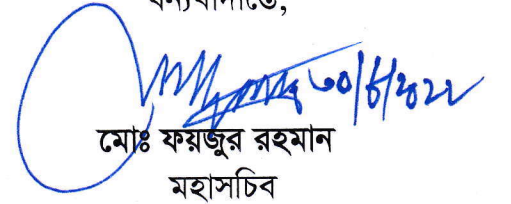 ধন্যবাদান্তে,
৩০/৬/২০২২
মোঃ ফয়জুর রহমান
মহাসচিব